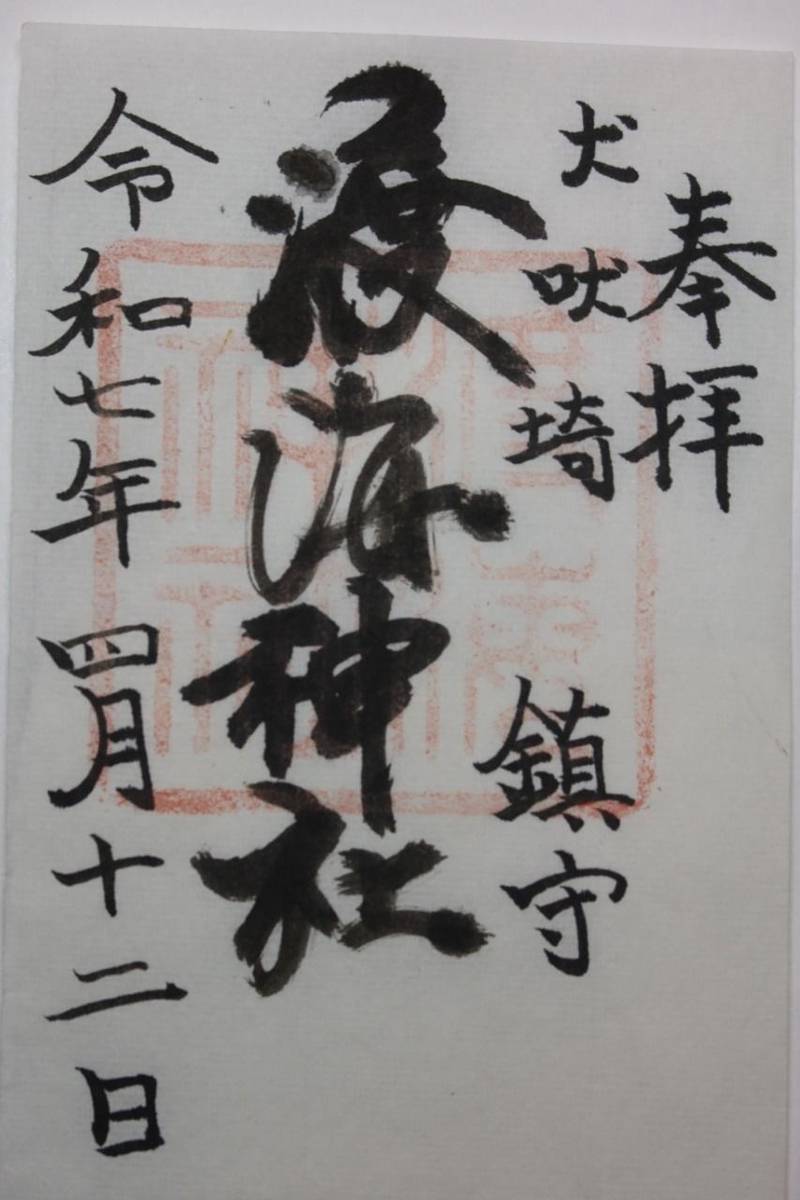 奉拝
犬吠埼 鎮守
渡海神社
令和七年 四月十二日